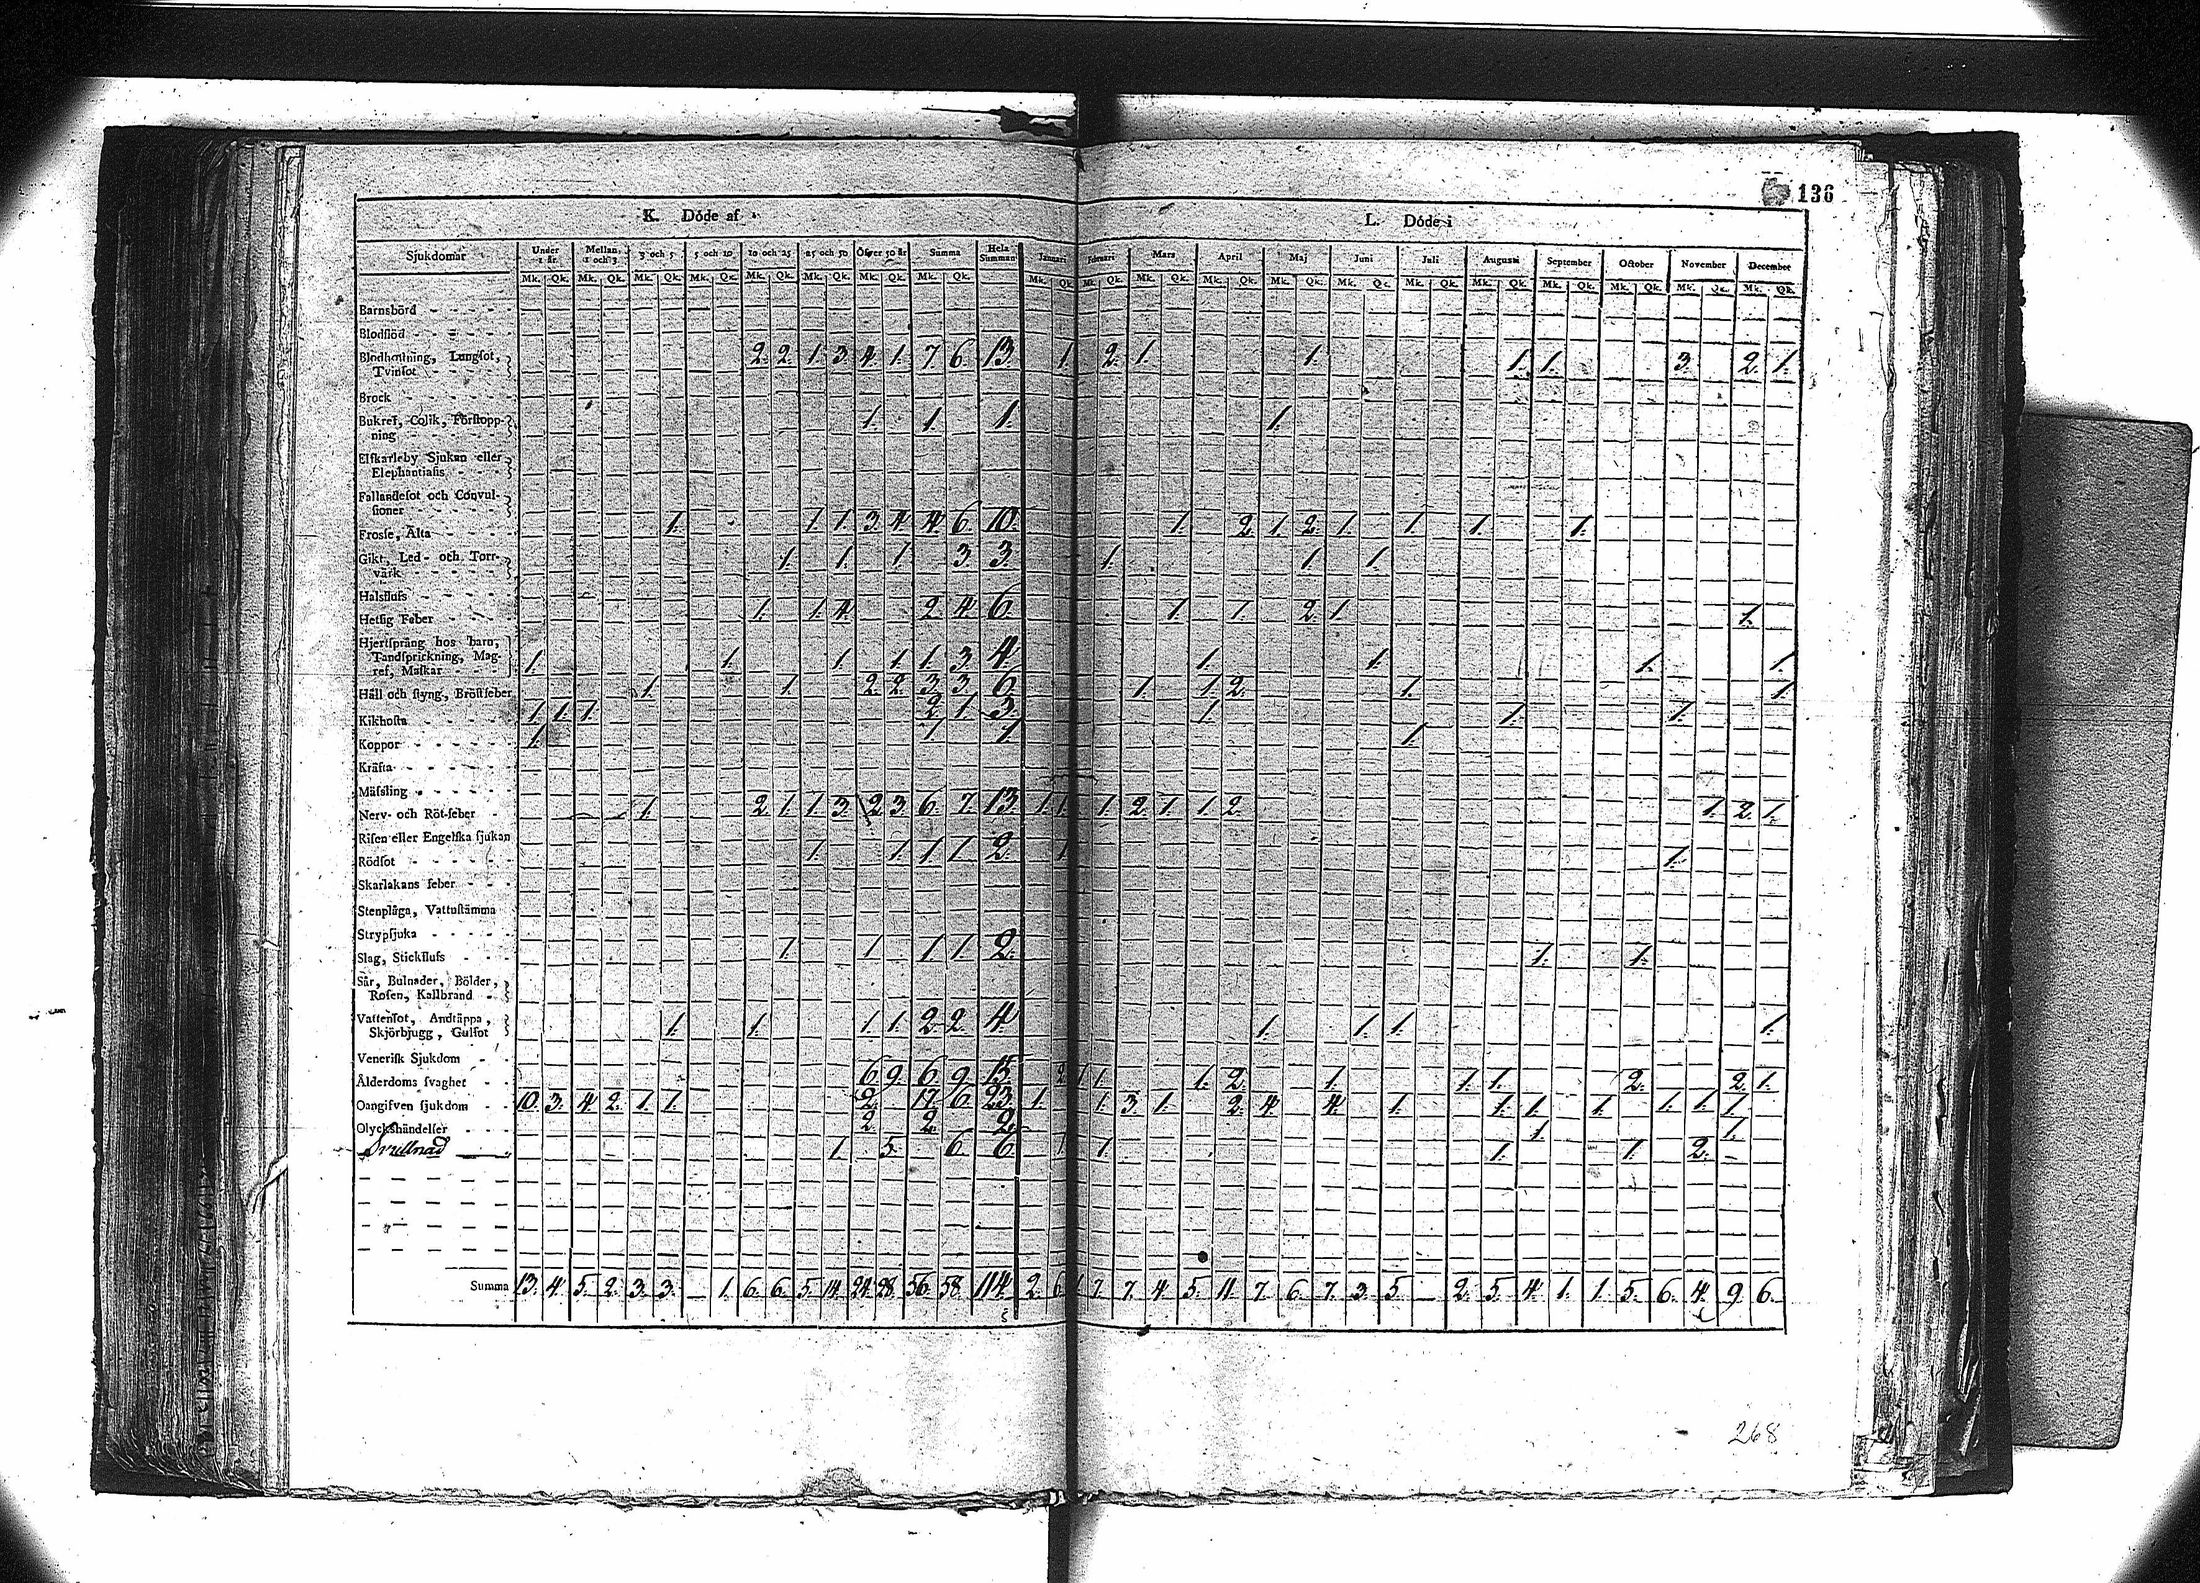 136
K. Döde af
L. Döde i
Sjukdomar Under 1 år. Mellan 1 och 3 3 och 5 5 och 10 10 och 25 25 och 50 Öfver 50 år Summa Hela Summan Januari Februari Mars April Maj Juni Juli Augusti September October November December
Mk. Qk. Mk. Qk. Mk. Qk. Mk. Qk. Mk. Qk. Mk. Qk. Mk. Qk. Mk. Qk. Mk. Qk. Mk. Qk. Mk. Qk. Mk. Qk. Mk. Qk. Mk. Qk. Mk. Qk. Mk. Qk. Mk. Qk. Mk. Qk. Mk. Qk. Mk. Qk.
Barnsbörd
Blodflöd
Blodhostning, Lungsot,
Tvinsot 2. 2. 1. 3. 4. 1. 7. 6. 13. 1. 2. 1. 1. 1. 1. 3. 2. 1.
Brock
Bukref, Colik, Förstopp-
ning 1. 1. 1. 1.
Elfkarleby Sjukan eller
Elephantiasis
Fallandesot och Convul-
sioner
Frossa, Älta 1. 1. 1. 3. 4. 4. 6. 10. 1. 2. 1. 2. 1. 1. 1. 1.
Gikt, Led- och Torr-
värk 1. 1. 1. 3. 3. 1. 1. 1.
Halsfluss
Hetsig Feber 1. 1. 4. 2. 4. 6. 1. 1. 2. 1. 1.
Hjertsprång hos barn,
Tandsprickning, Mag-
ref, Maskar 1. 1. 1. 1. 1. 3. 4. 1. 1. 1. 1.
Håll och styng, Bröstfeber 1. 1. 2. 2. 3. 3. 6. 1. 1. 2. 1. 1.
Kikhosta 1. 1. 1. 2. 1. 3. 1. 1. 1.
Koppor 1. 1. 1. 1.
Kräfta
Mässling
Nerv- och Röt-feber 1. 2. 1. 1. 3. 2. 3. 6. 7. 13. 1. 1. 1. 2. 1. 1. 2. 1. 2. 1.
Risen eller Engelska sjukan
Rödsot 1. 1. 1. 1. 2. 1. 1.
Skarlakans feber
Stenplåga, Vattustämma
Strypsjuka
Slag, Stickfluss 1. 1. 1. 1. 2. 1. 1.
Sår, Bulnader, Bölder,
Rosen, Kallbrand
Vattensot, Andtäppa,
Skjörbjugg, Gulsot 1. 1. 1. 1. 2. 2. 4. 1. 1. 1. 1.
Venerisk Sjukdom
Ålderdoms svaghet 6. 9. 6. 9. 15. 2. 1. 1. 1. 2. 1. 1. 1. 2. 2. 1.
Oangifven sjukdom 10. 3. 4. 2. 1. 1. 2. 17. 6. 23. 1. 1. 3. 1. 2. 4. 4. 1. 1. 1. 1. 1. 1. 1.
Olyckshändelser 2. 2. 2. 1. 1.
Svullnad 1. 5. 6. 6. 1. 1. 1. 1. 2.
Summa 13. 4. 5. 2. 3. 3. 1. 6. 6. 5. 14. 24. 28. 56. 58. 114. 2. 6. 1. 7. 7. 4. 5. 11. 7. 6. 7. 3. 5. 2. 5. 4. 1. 1. 5. 6. 4. 9. 6.
268